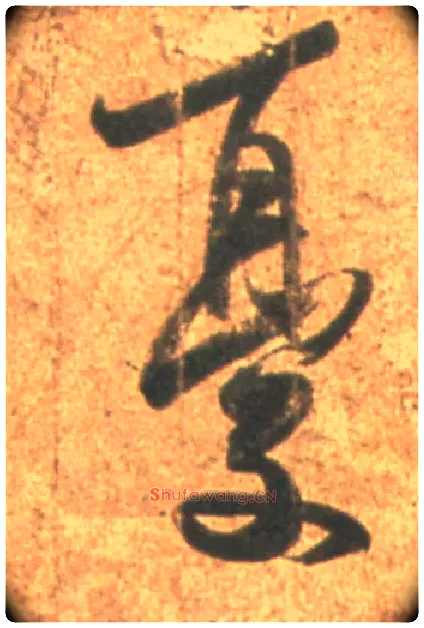 憂
Shufawang.CN